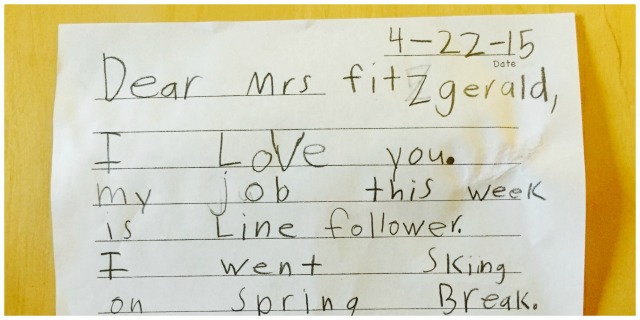 4-22-15
Date
Dear Mrs fitzgerald,
I LoVe you.
my job this week
is Line follower.
I went Sking
on Spring Break.